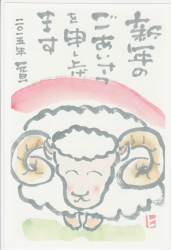 新年の
ごあいさつ
を申し上げ
ます
二〇一五年 元旦